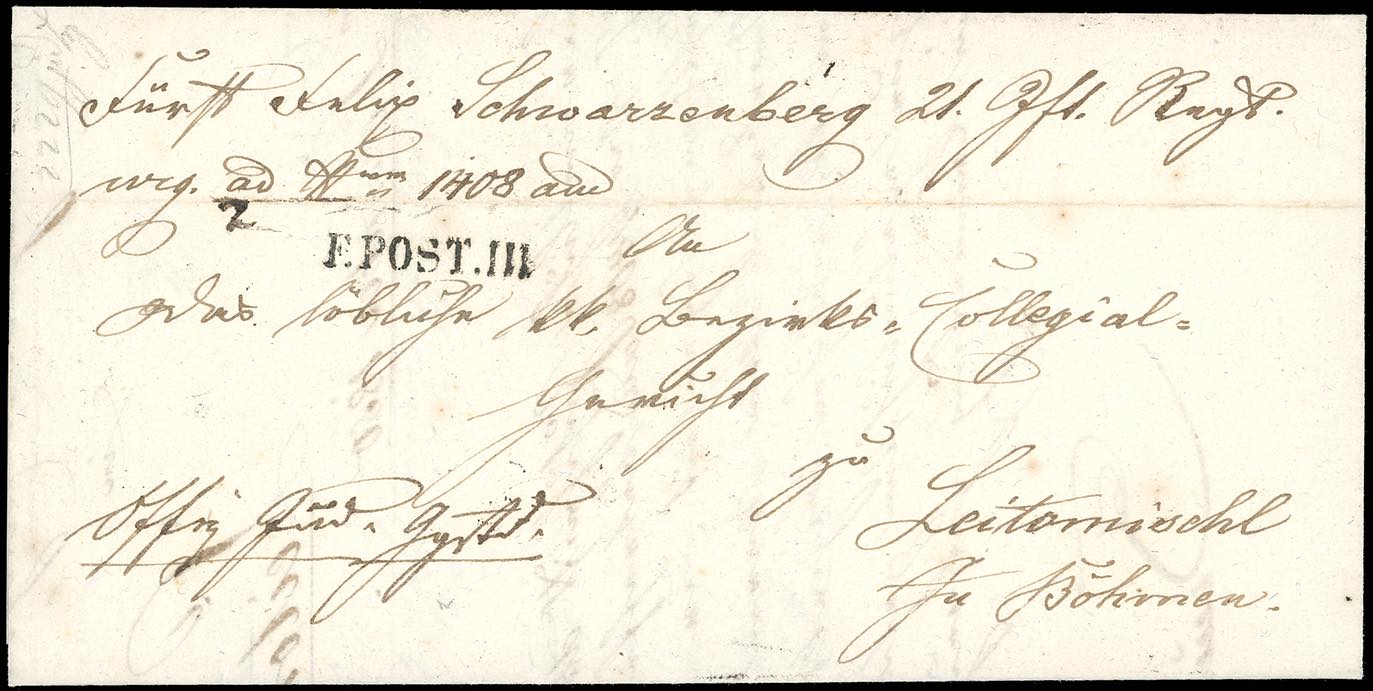 Fürst Felix Schwarzenberg 21. Inft. Regt.
ad Num 1408
2
F.POST.III
An
Das löbliche kk. Bezirks- Collegial-
Gericht
zu
Leitomischl
In Böhmen.
Offiz Jud. Ggstd.